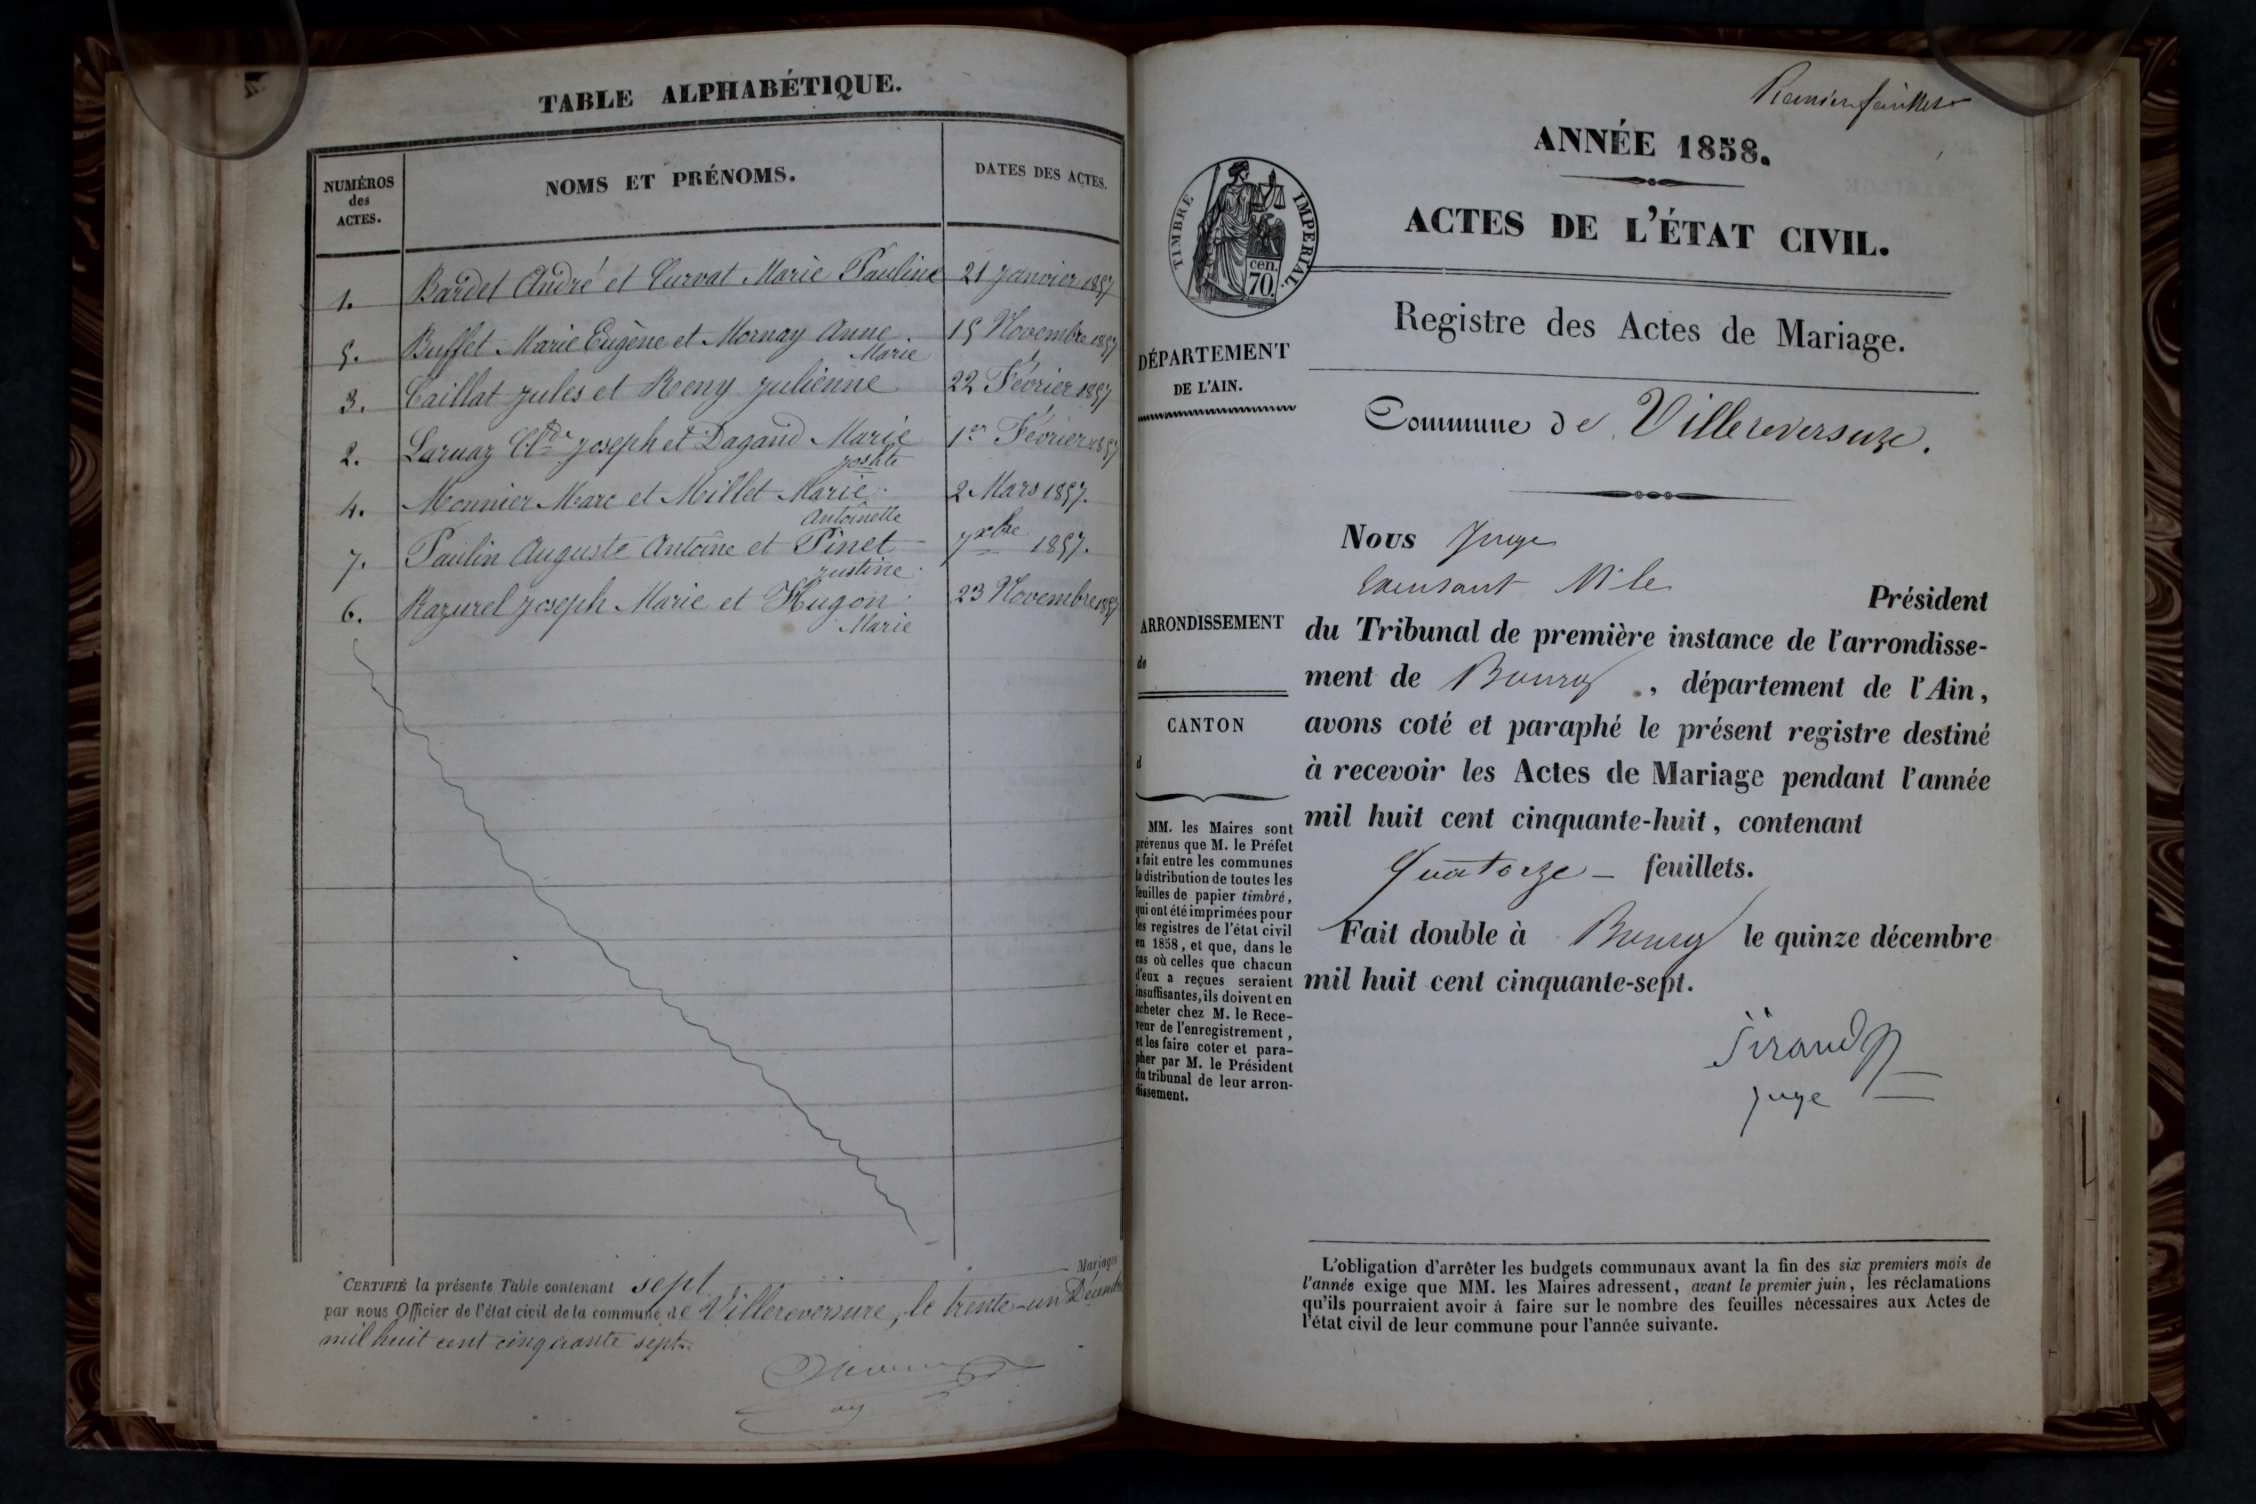 TABLE ALPHABÉTIQUE.
NUMÉROS
des
ACTES.
NOMS ET PRÉNOMS.
DATES DES ACTES.
1. Bardet André et Curvat Marie Pauline 21 Janvier 1857
5. Buffet Marie Eugène et Mornay Anne 15 Novembre 1857
Marie
3. Caillat Jules et Reny Julienne 22 Février 1857
2. Larnaz Cl.de Joseph et Dagand Marie 1er Février 1857
Josphte
4. Monnier Marc et Millet Marie 2 Mars 1857.
Antoinette
7. Paulin Auguste Antoine et Pinet 7 xbre 1857.
Justine
6. Razurel Joseph Marie et Hugon 23 Novembre 1857
Marie
CERTIFIÉ la présente Table contenant sept Mariages
par nous Officier de l'état civil de la commune de Villereversure, le trente-un Décembre
mil huit cent cinquante sept.
Premier feuillet
ANNÉE 1858.
ACTES DE L'ÉTAT CIVIL.
TIMBRE IMPERIAL.
70. cen.
Registre des Actes de Mariage.
DÉPARTEMENT
DE L'AIN.
Commune de Villereversure.
ARRONDISSEMENT
de
CANTON
d
MM. les Maires sont
prévenus que M. le Préfet
a fait entre les communes
la distribution de toutes les
feuilles de papier timbré,
qui ont été imprimées pour
les registres de l'état civil
en 1858, et que, dans le
cas où celles que chacun
d'eux a reçues seraient
insuffisantes, ils doivent en
acheter chez M. le Rece-
veur de l'enregistrement,
et les faire coter et para-
pher par M. le Président
du tribunal de leur arron-
dissement.
Nous Juge
M. le Président
du Tribunal de première instance de l'arrondisse-
ment de Bourg, département de l'Ain,
avons coté et paraphé le présent registre destiné
à recevoir les Actes de Mariage pendant l'année
mil huit cent cinquante-huit, contenant
Quatorze - feuillets.
Fait double à Bourg le quinze décembre
mil huit cent cinquante-sept.
Sirand
Juge
L'obligation d'arrêter les budgets communaux avant la fin des six premiers mois de
l'année exige que MM. les Maires adressent, avant le premier juin, les réclamations
qu'ils pourraient avoir à faire sur le nombre des feuilles nécessaires aux Actes de
l'état civil de leur commune pour l'année suivante.